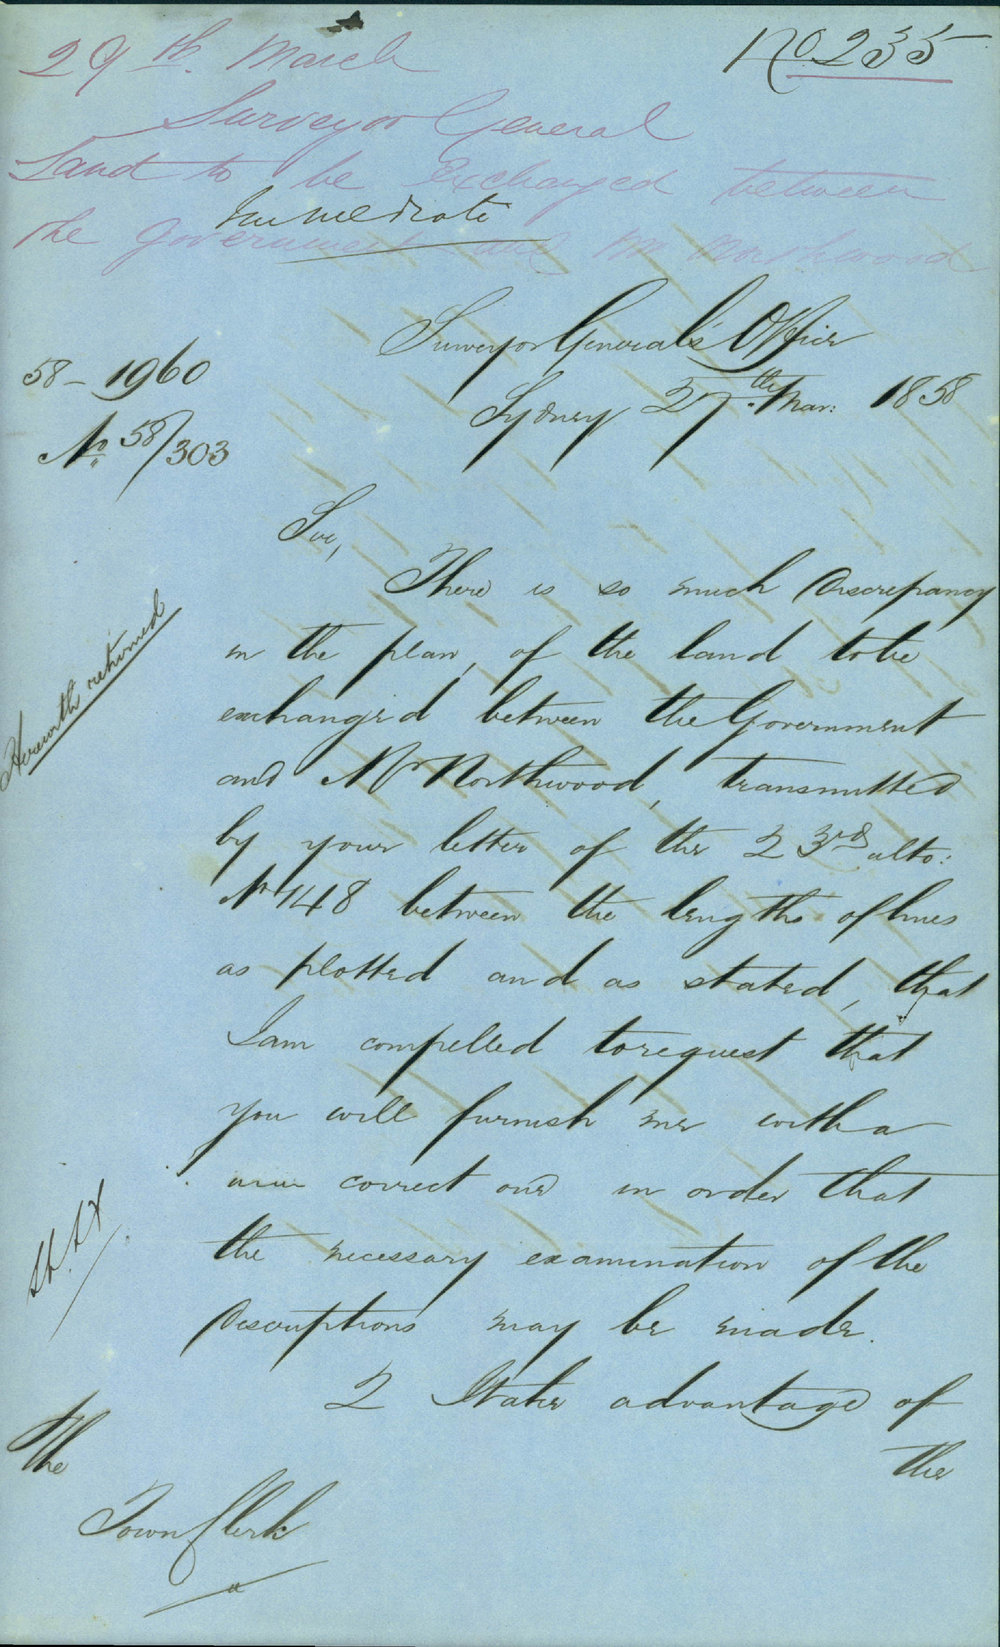 29th. March
No. 235
Surveyor General
Land to be Exchanged between
the Government and Mr Northwood
Immediate
Surveyor General's Office
Sydney 27th. Mar: 1858
58-1960
No 58/303
Sir,
There is so much Discrepancy
in the plan, of the land to be
exchanged between the Government
and Mr Northwood, transmitted
by your letter of the 23rd ulto:
No 148 between the lengths of lines
as plotted and as stated, that
I am compelled to request that
you will furnish me with a
new correct one in order that
the necessary examination of the
Descriptions may be made.
2 I take advantage of
the
Herewith returned
The
Town Clerk